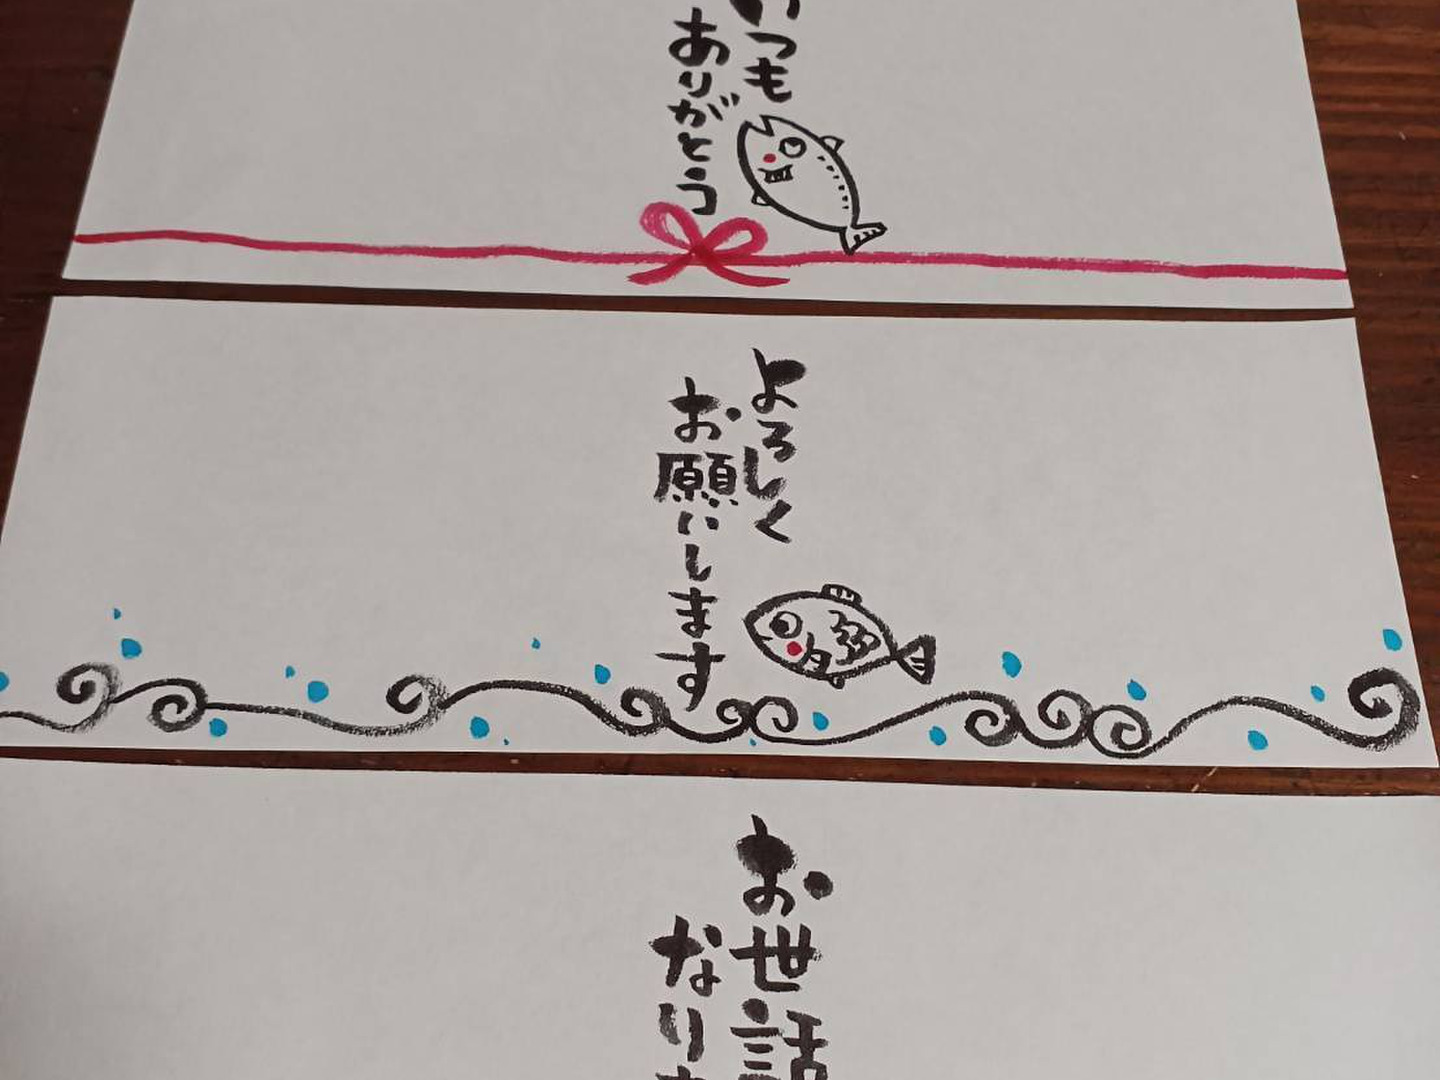 いつも
ありがとう
よろしく
お願いします
お世話
なり